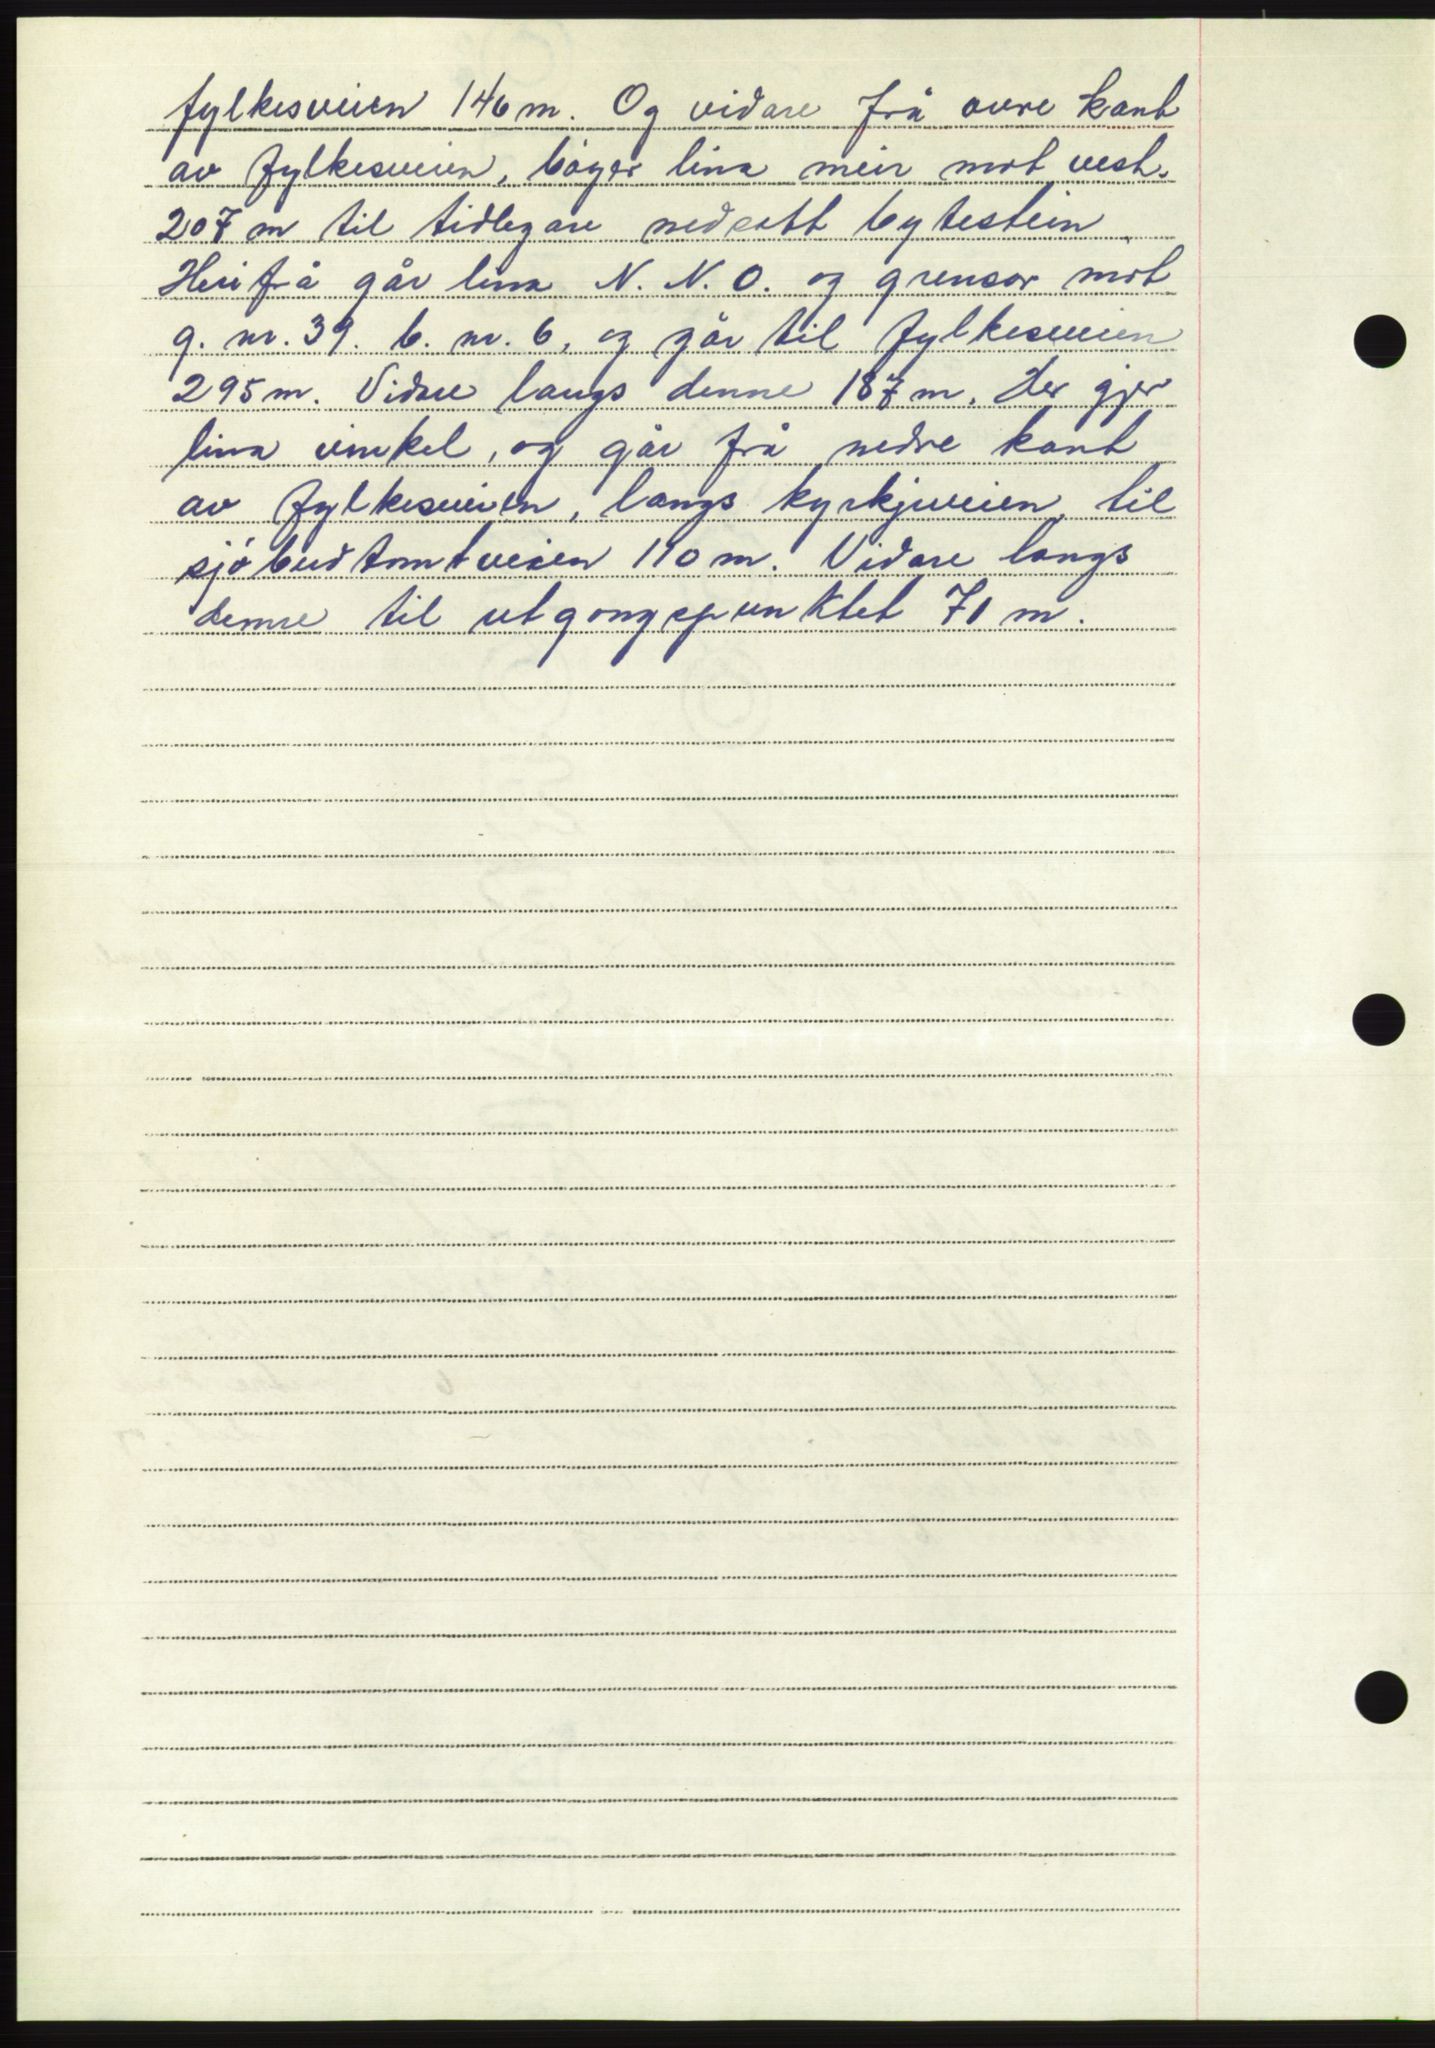 fylkesveien 146 m. Og vidare frå ovre kant
av fylkesveien, böyer lina meir mot vest.
207 m til tidlegare nedsatt bytestein
Herifrå går lina N. N. O. og grensar mot
g. nr. 39. b. nr. 6, og går til fylkesveien
295 m. Vidare langs denne 187 m. Her gjer
lina vinkel, og går frå nedre kant
av fylkesveien, langs kyrkjeveien, til
sjöbudtomtveien 110 m. Vidare langs
denne til utgongspunktet 71 m.